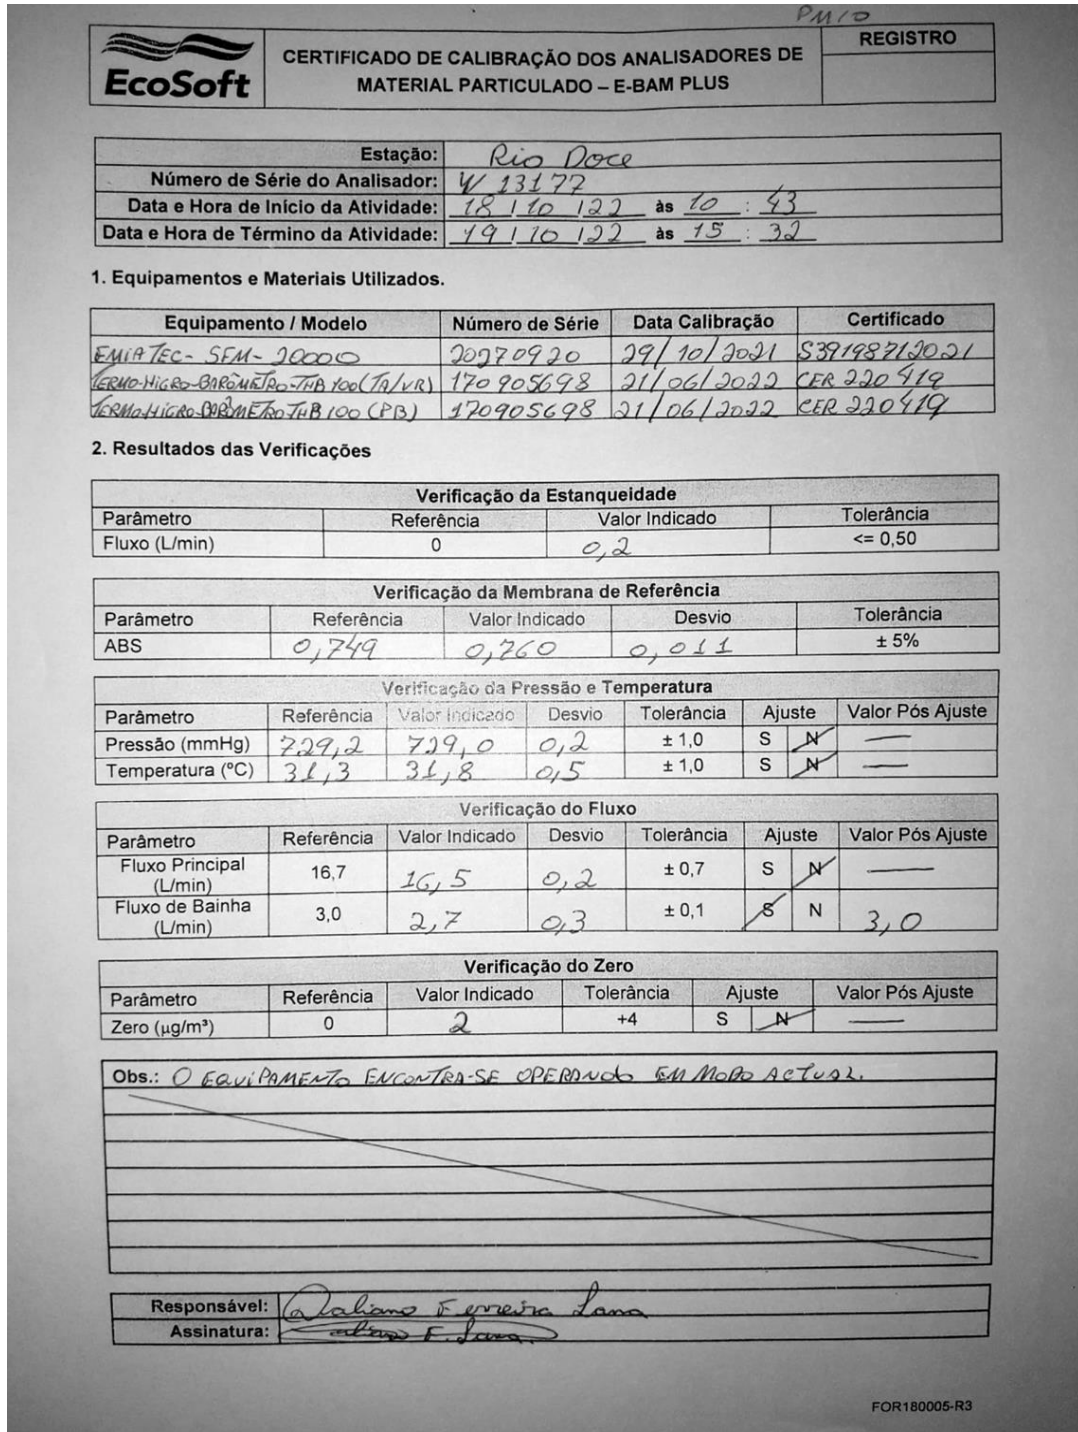 PM10
EcoSoft
CERTIFICADO DE CALIBRAÇÃO DOS ANALISADORES DE
MATERIAL PARTICULADO – E-BAM PLUS
REGISTRO
Estação: Rio Doce
Número de Série do Analisador: W 13177
Data e Hora de Início da Atividade: 18 / 10 / 22 às 10 : 43
Data e Hora de Término da Atividade: 19 / 10 / 22 às 15 : 32
1. Equipamentos e Materiais Utilizados.
Equipamento / Modelo Número de Série Data Calibração Certificado
20270920 29/10/2021 S391987/2021
TERMO-HIGRO-BARÔMETRO-THB 100 (TA/VR) 170905698 21/06/2022 CER 220419
TERMO-HIGRO-BARÔMETRO THB 100 (PB) 170905698 21/06/2022 CER 220419
2. Resultados das Verificações
Verificação da Estanqueidade
Parâmetro Referência Valor Indicado Tolerância
Fluxo (L/min) 0 0,2 <= 0,50
Verificação da Membrana de Referência
Parâmetro Referência Valor Indicado Desvio Tolerância
ABS 0,749 0,760 0,011 ± 5%
Verificação da Pressão e Temperatura
Parâmetro Referência Valor Indicado Desvio Tolerância Ajuste Valor Pós Ajuste
Pressão (mmHg) 729,2 729,0 0,2 ± 1,0 S N —
Temperatura (ºC) 31,3 31,8 0,5 ± 1,0 S N —
Verificação do Fluxo
Parâmetro Referência Valor Indicado Desvio Tolerância Ajuste Valor Pós Ajuste
Fluxo Principal
(L/min) 16,7 16,5 0,2 ± 0,7 S N —
Fluxo de Bainha
(L/min) 3,0 2,7 0,3 ± 0,1 S N 3,0
Verificação do Zero
Parâmetro Referência Valor Indicado Tolerância Ajuste Valor Pós Ajuste
Zero (µg/m³) 0 2 +4 S N —
Obs.: O EQUIPAMENTO ENCONTRA-SE OPERANDO EM MODO ACTUAL.
Responsável: Ferreira Lana
Assinatura: F. Lana
FOR180005-R3